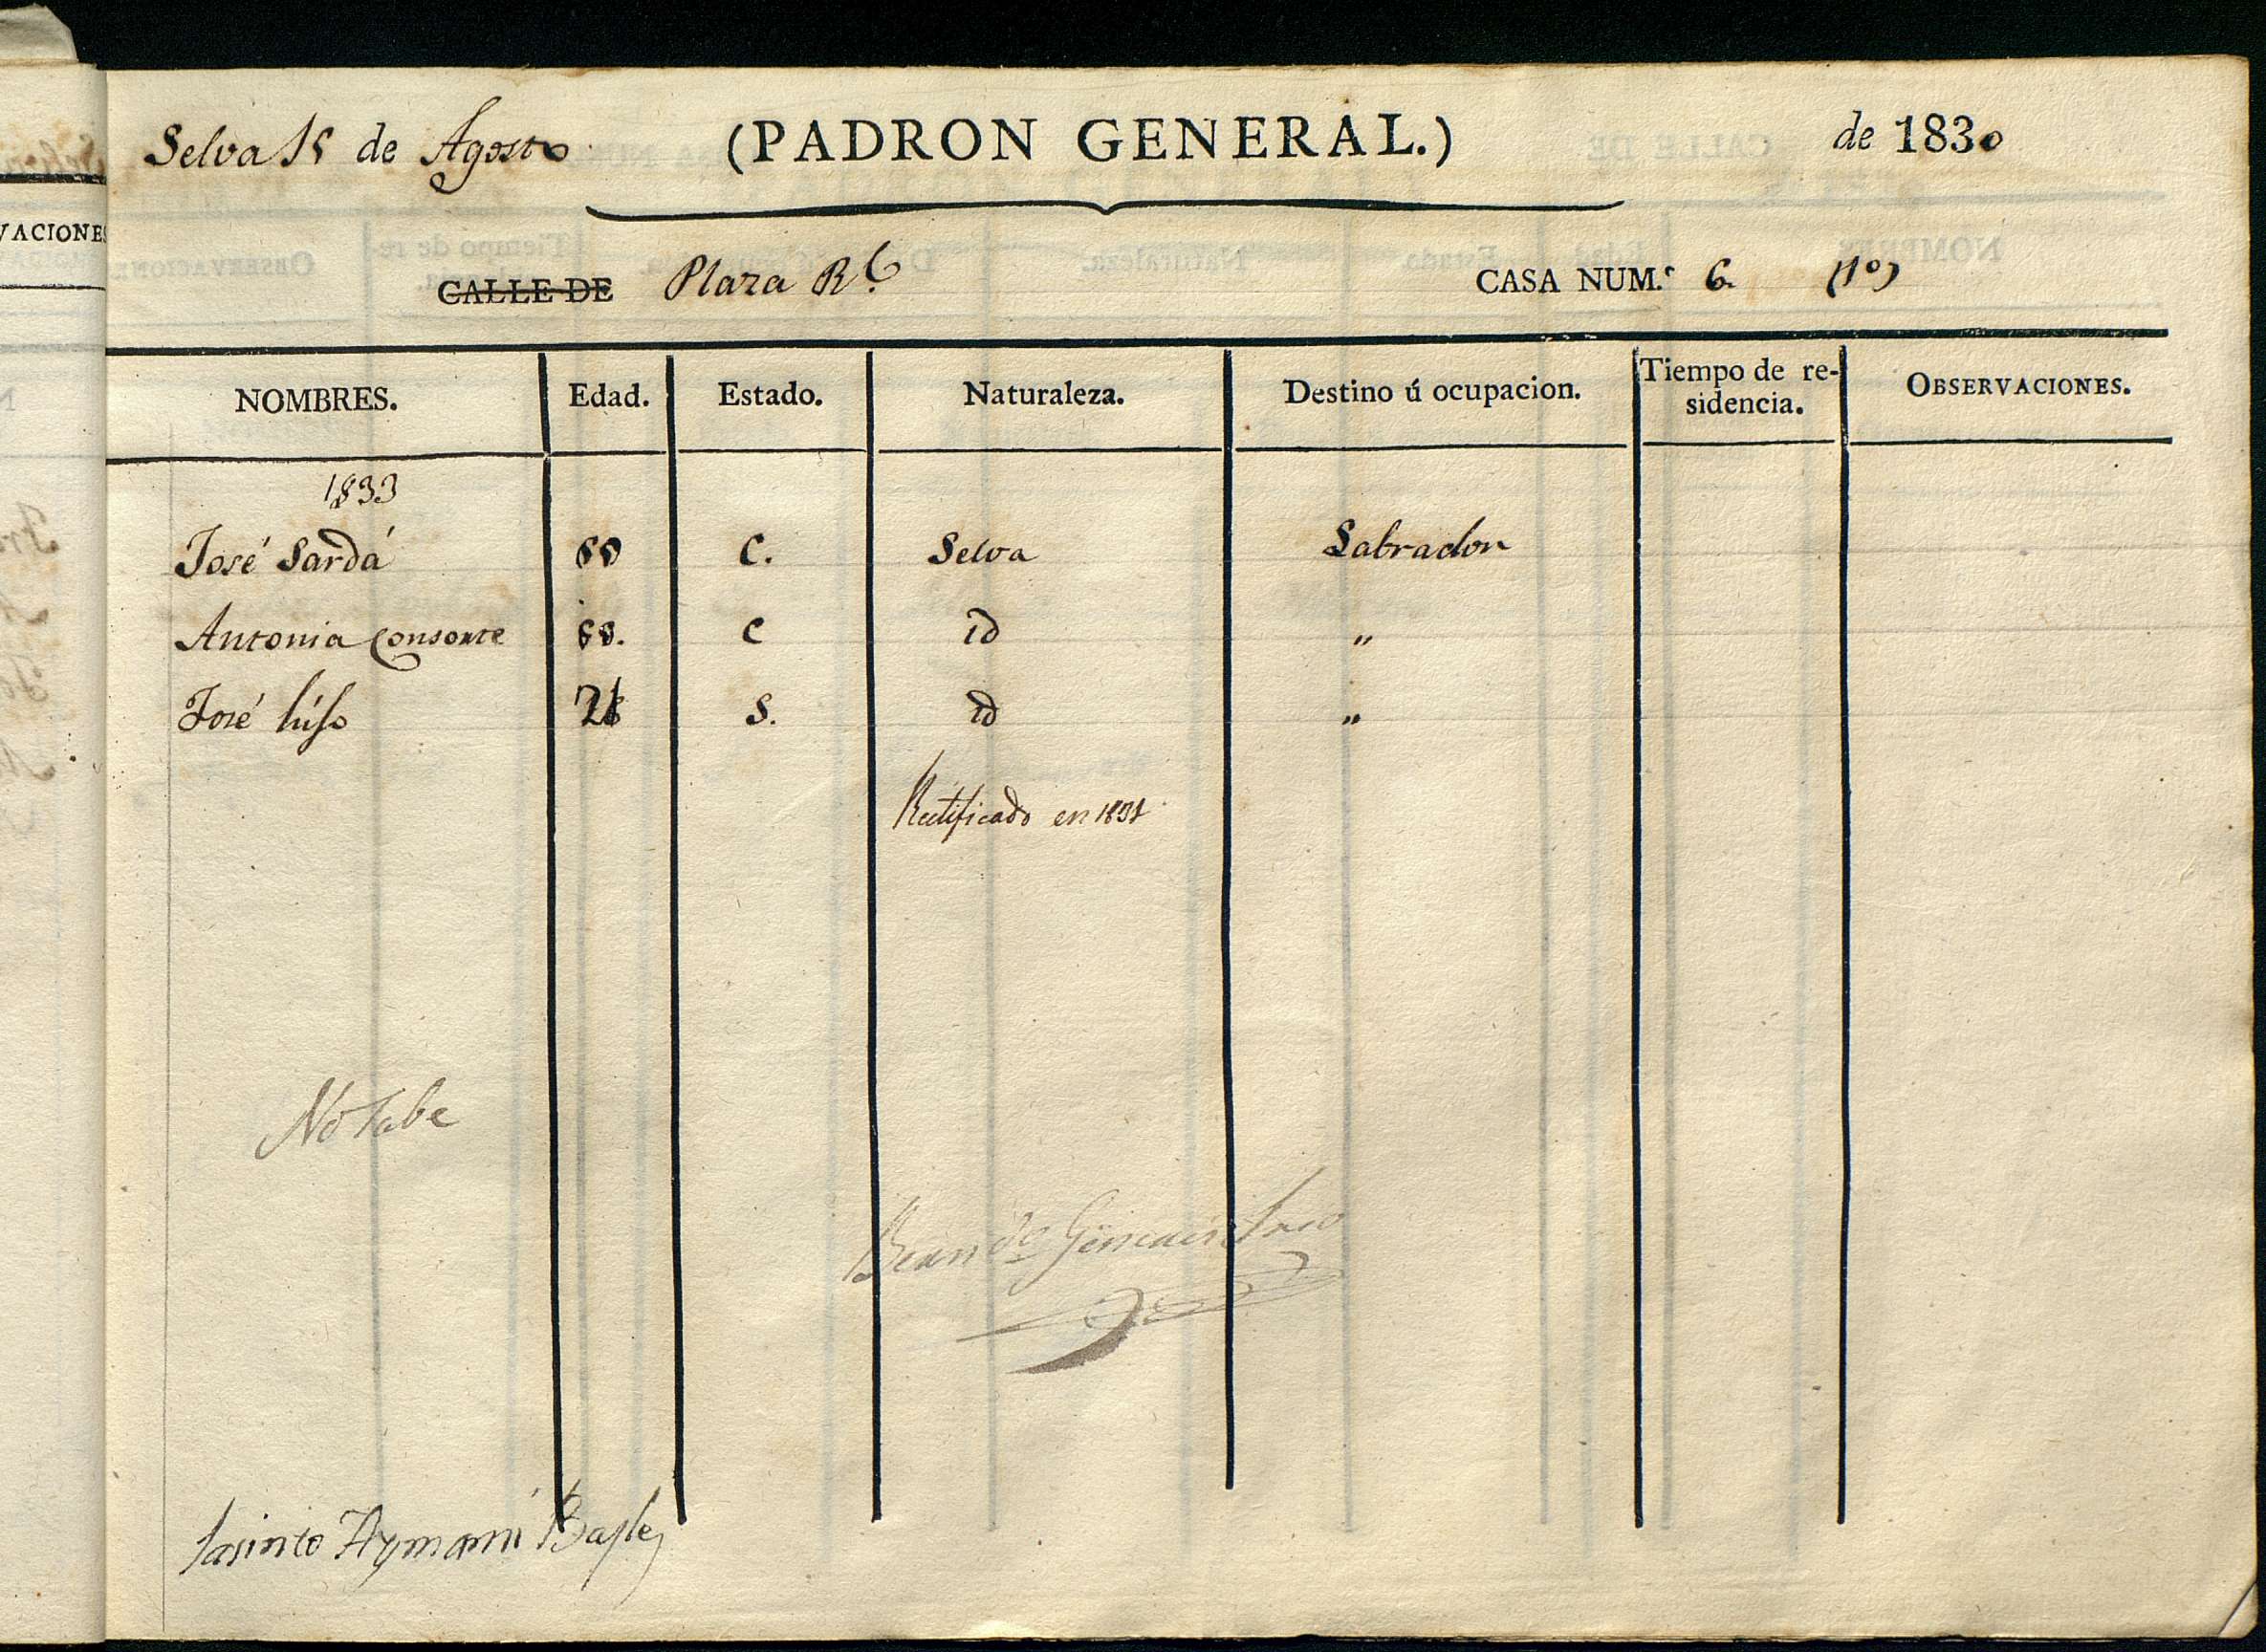 Selva 15 de Agosto (PADRON GENERAL.) de 1830
CALLE DE Plaza Rl. CASA NUM.º 6. (1º)
VACIONES
NOMBRES. Edad. Estado. Naturaleza. Destino ú ocupacion. Tiempo de re-sidencia. OBSERVACIONES.
1833
José Sardá C. Selva Labrador
Antonia Consorte C id "
José hijo S. id "
Rectificado en 1831
No sabe
Jasinto Aymamí Bayle